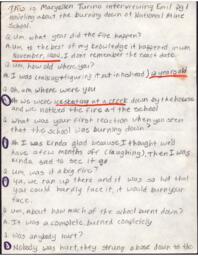 This is Maryellen Turino interviewing Emil
about the burning down of National Mine
School.
Q. Um, what year did the fire happen?
A. Um, to the best of my knowledge it happened in um
November, I dont remember the exact date.
Q. Um, how old where you?
A. I was (9 years old
Q. Ok, um where were you
Oh we were ice skating at a creek down by the house
and we noticed the fire at the school
Q. What was your first reaction when you seen
that the school was burning down?
I was kinda glad because I thought we'd
have afew months off (laughing), Then I was
kinda sad to see it go
Q. um, was it a big fire?
Ya, we ran up there and it was so hot that
you could barely face it, it would burn your
face.
Q. um, about how much of the school burnt down?
A. It was a complete burned completely
Q. Was anybody hurt?
Nobody was hurt, they strung a hose down to the